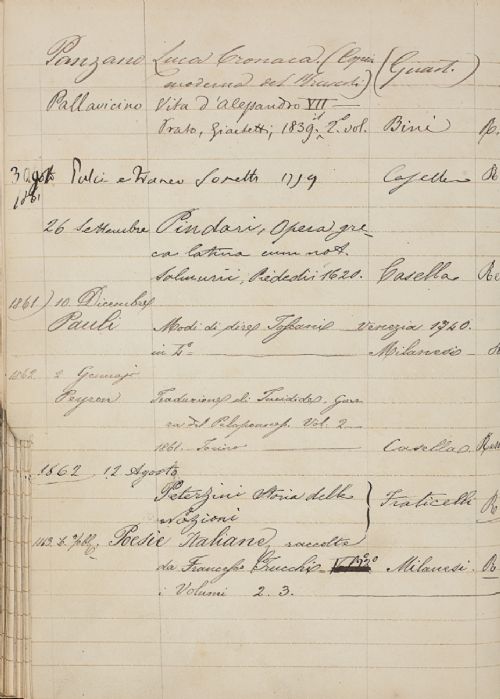 Panzano Luca Cronaca. (Copia
moderna del ) (Guast.)
Pallavicino Vita d'Alessandro VII
Prato, Giachetti, 1839. 1° 2° vol. Bini R.
3 Agosto Pulci e Franco Sonetti 1759 Casella R
1861
26 Settembre Pindari, Opera gre-
ca latina cum not.
Salmurii, Piededii 1620. Casella Re
1861) 10 Dicembre
Pauli Modi di dire Toscani Venezia 1740.
in 4° Milanesi R
1862 2 Gennajo
Peyron Traduzione di Tucidide. Guer
ra del Peloponneso Vol. 2
1861. Torino Casella. Res
1862. 12 Agosto
Peterzini Storia delle
Nozioni Fraticelli R
1863. Poesie Italiane, raccolte
da Francesco Trucchi Milanesi. R
i Volumi 2. 3.